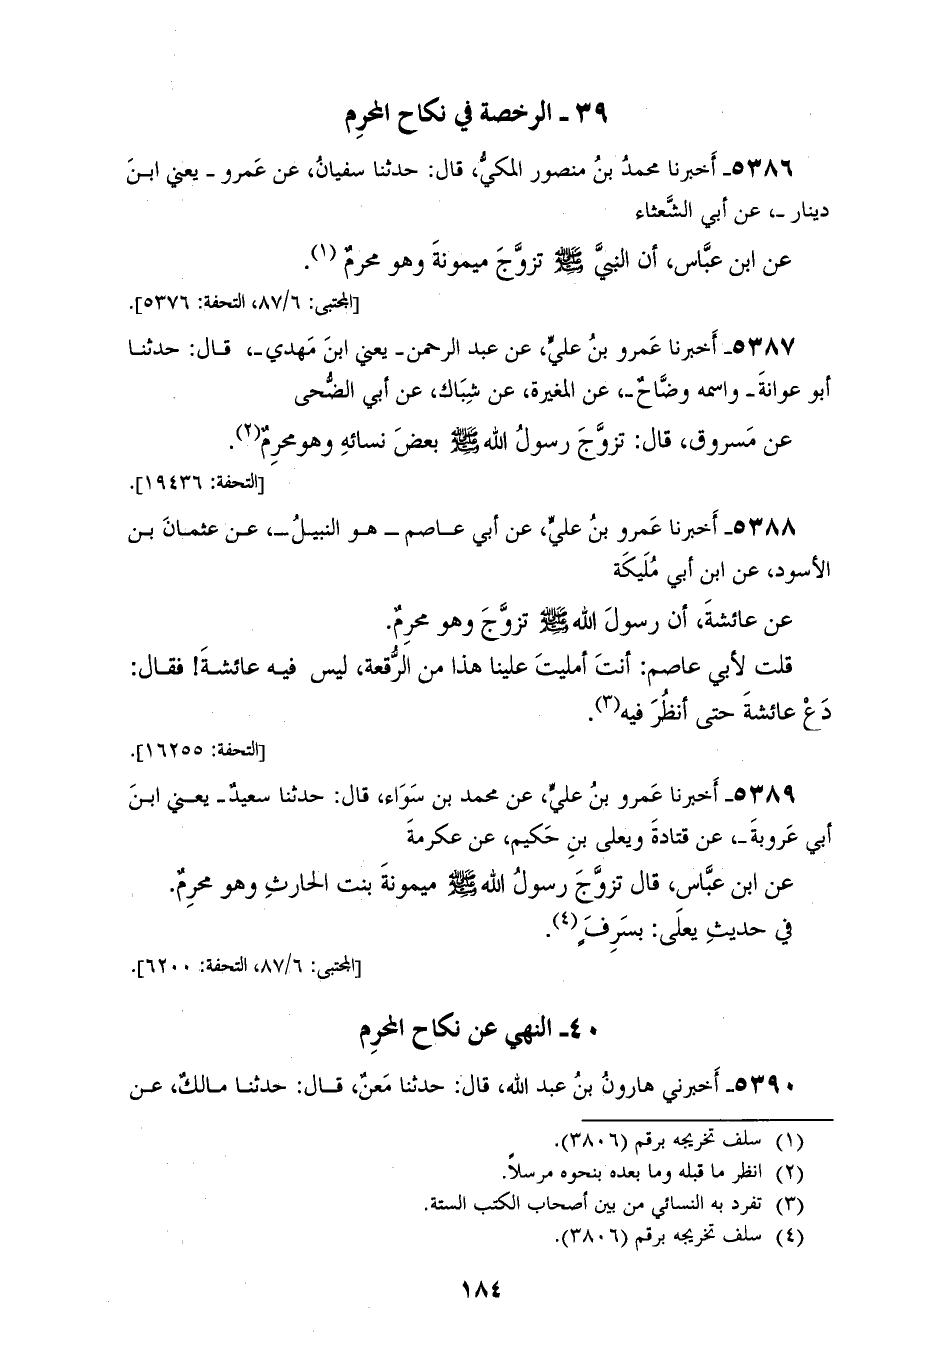 ٣٩ ـ الرخصة في نكاح المحرِم
٥٣٨٦ـ أَخبرنا محمدُ بنُ منصور المكيُّ، قال: حدثنا سفيانُ، عن عَمرو ـ يعني ابنَ
دينار ـ، عن أبي الشَّعثاء
عن ابن عبَّاس، أن النبيَّ ﷺ تزوَّجَ ميمونةَ وهو محرمٌ (١).
[المجتبى: ٨٧/٦، التحفة: ٥٣٧٦].
٥٣٨٧ـ أَخبرنا عَمرو بنُ عليٍّ، عن عبد الرحمن ـ يعني ابنَ مَهدي ـ، قال: حدثنا
أبو عوانةَ ـ واسمه وضَّاحٌ ـ، عن المغيرة، عن شِبَاك، عن أبي الضُّحى
عن مَسروق، قال: تزوَّجَ رسولُ الله ﷺ بعضَ نسائهِ وهو محرِمٌ(٢).
[التحفة: ١٩٤٣٦].
٥٣٨٨ـ أَخبرنا عَمرو بنُ عليٍّ، عن أبي عاصم ـ هو النبيلُ ـ، عن عثمانَ بن
الأسود، عن ابن أبي مُلَيكَة
عن عائشةَ، أن رسولَ الله ﷺ تزوَّجَ وهو محرِمٌ.
قلت لأبي عاصم: أنتَ أمليتَ علينا هذا من الرُّقعة، ليس فيه عائشةَ! فقال:
دَعْ عائشةَ حتى أنظُرَ فيه(٣).
[التحفة: ١٦٢٥٥].
٥٣٨٩ـ أَخبرنا عَمرو بنُ عليٍّ، عن محمد بن سَوَاء، قال: حدثنا سعيدٌ ـ يعني ابنَ
أبي عَروبةَ ـ، عن قتادةَ ويعلى بنِ حَكيم، عن عكرمةَ
عن ابن عبَّاس، قال تزوَّجَ رسولُ الله ﷺ ميمونةَ بنت الحارثِ وهو محرِمٌ.
في حديثِ يعلَى: بسَرِفَ(٤).
[المجتبى: ٨٧/٦، التحفة: ٦٢٠٠].
٤٠ـ النهي عن نكاح المحرِم
٥٣٩٠ـ أَخبرني هارونُ بنُ عبد الله، قال: حدثنا مَعنٌ، قال: حدثنا مالكٌ، عن
(١) سلف تخريجه برقم (٣٨٠٦).
(٢) انظر ما قبله وما بعده بنحوه مرسلاً.
(٣) تفرد به النسائي من بين أصحاب الكتب الستة.
(٤) سلف تخريجه برقم (٣٨٠٦).
١٨٤